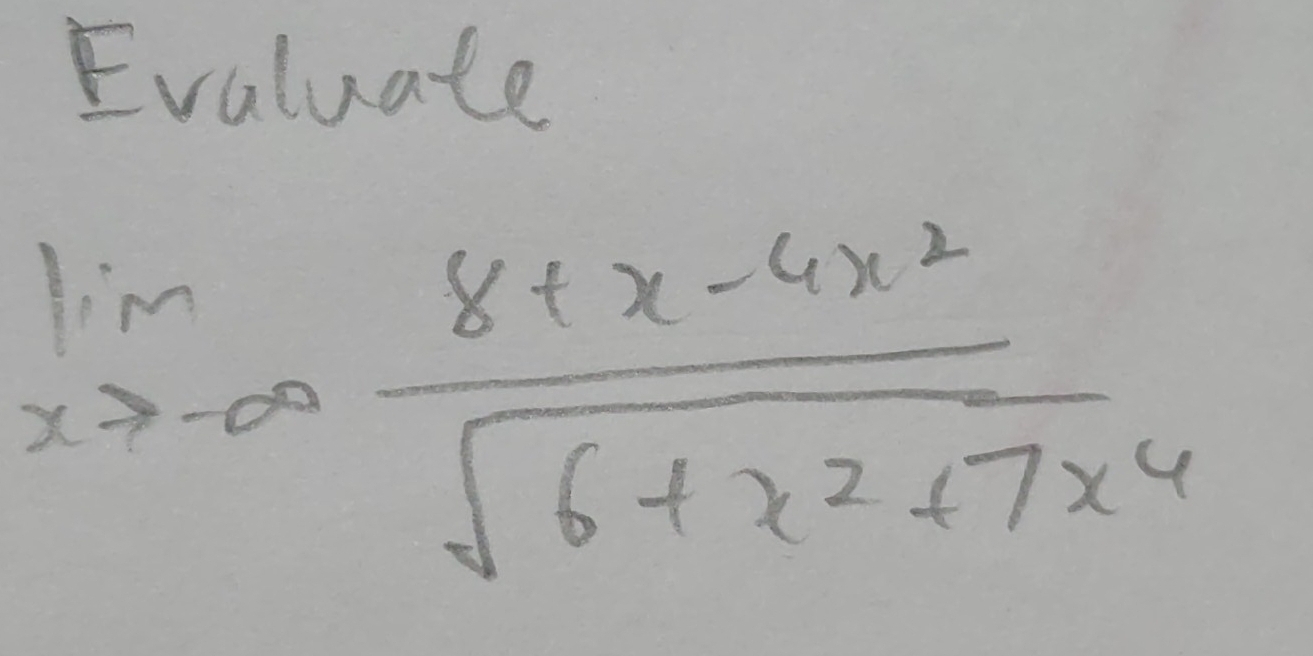 Evaluate
lim x→-∞ (8+x-4x²)/√(6+x²+7x⁴)